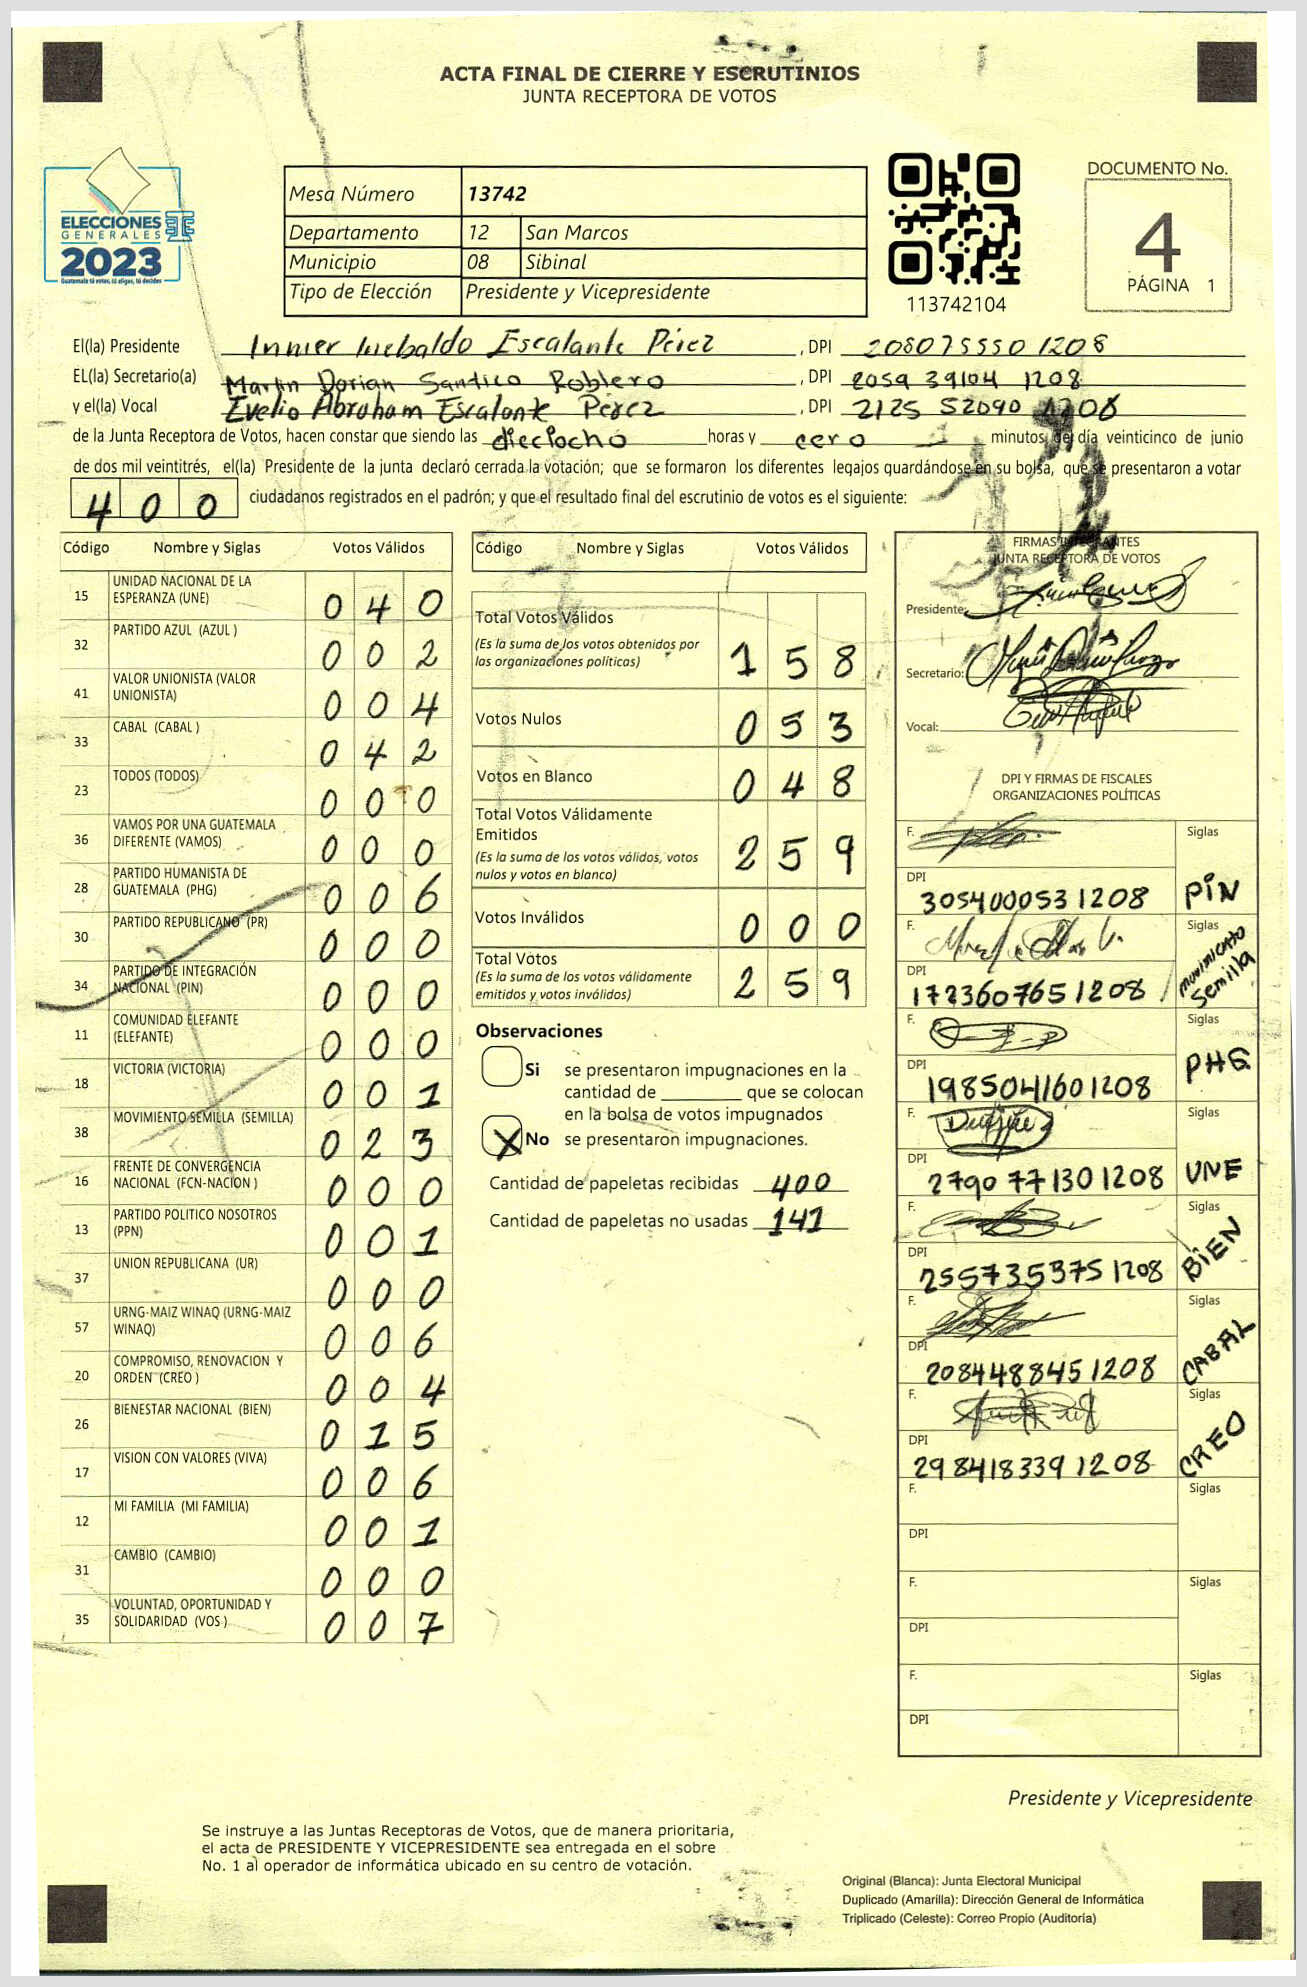 ACTA FINAL DE CIERRE Y ESCRUTINIOS
JUNTA RECEPTORA DE VOTOS
ELECCIONES
GENERALES
2023
Guatemala tú votas, tú eliges, tú decides
Mesa Número 13742
Departamento 12 San Marcos
Municipio 08 Sibinal
Tipo de Elección Presidente y Vicepresidente
113742104
DOCUMENTO No.
4
PÁGINA 1
El(la) Presidente Escalante Pérez , DPI 208075550 1208
EL(la) Secretario(a) Martin Dorian Santico Roblero , DPI 2059 39104 1208
y el(la) Vocal Evelio Abraham Escalante Pérez , DPI 2125 52090 1208
de la Junta Receptora de Votos, hacen constar que siendo las dieciocho horas y cero minutos del día veinticinco de junio
de dos mil veintitrés, el(la) Presidente de la junta declaró cerrada la votación; que se formaron los diferentes legajos guardándose en su bolsa, que se presentaron a votar
400 ciudadanos registrados en el padrón; y que el resultado final del escrutinio de votos es el siguiente:
Código Nombre y Siglas Votos Válidos
15 UNIDAD NACIONAL DE LA ESPERANZA (UNE) 0 4 0
32 PARTIDO AZUL (AZUL ) 0 0 2
41 VALOR UNIONISTA (VALOR UNIONISTA) 0 0 4
33 CABAL (CABAL ) 0 4 2
23 TODOS (TODOS) 0 0 0
36 VAMOS POR UNA GUATEMALA DIFERENTE (VAMOS) 0 0 0
28 PARTIDO HUMANISTA DE GUATEMALA (PHG) 0 0 6
30 PARTIDO REPUBLICANO (PR) 0 0 0
34 PARTIDO DE INTEGRACIÓN NACIONAL (PIN) 0 0 0
11 COMUNIDAD ELEFANTE (ELEFANTE) 0 0 0
18 VICTORIA (VICTORIA) 0 0 1
38 MOVIMIENTO SEMILLA (SEMILLA) 0 2 3
16 FRENTE DE CONVERGENCIA NACIONAL (FCN-NACION ) 0 0 0
13 PARTIDO POLITICO NOSOTROS (PPN) 0 0 1
37 UNION REPUBLICANA (UR) 0 0 0
57 URNG-MAIZ WINAQ (URNG-MAIZ WINAQ) 0 0 6
20 COMPROMISO, RENOVACION Y ORDEN (CREO ) 0 0 4
26 BIENESTAR NACIONAL (BIEN) 0 1 5
17 VISION CON VALORES (VIVA) 0 0 6
12 MI FAMILIA (MI FAMILIA) 0 0 1
31 CAMBIO (CAMBIO) 0 0 0
35 VOLUNTAD, OPORTUNIDAD Y SOLIDARIDAD (VOS ) 0 0 7
Código Nombre y Siglas Votos Válidos
Total Votos Válidos 1 5 8
(Es la suma de los votos obtenidos por
las organizaciones políticas)
Votos Nulos 0 5 3
Votos en Blanco 0 4 8
Total Votos Válidamente
Emitidos 2 5 9
(Es la suma de los votos válidos, votos
nulos y votos en blanco)
Votos Inválidos 0 0 0
Total Votos 2 5 9
(Es la suma de los votos válidamente
emitidos y votos inválidos)
Observaciones
Si se presentaron impugnaciones en la
cantidad de ________ que se colocan
en la bolsa de votos impugnados
X No se presentaron impugnaciones.
Cantidad de papeletas recibidas 400
Cantidad de papeletas no usadas 141
FIRMAS INTEGRANTES
JUNTA RECEPTORA DE VOTOS
Presidente:
Secretario:
Vocal:
DPI Y FIRMAS DE FISCALES
ORGANIZACIONES POLÍTICAS
F. Siglas
DPI 305400053 1208 PIN
F. Siglas
DPI 1723607651208 MOVIMIENTO Semilla
F. Siglas
DPI 1985041601208 PHG
F. Siglas
DPI 2790 77130 1208 UNE
F. Siglas
DPI 255735375 1208 BIEN
F. Siglas
DPI 208448845 1208 CABAL
F. Siglas
DPI 298418339 1208 CREO
F. Siglas
DPI
F. Siglas
DPI
F. Siglas
DPI
Presidente y Vicepresidente
Se instruye a las Juntas Receptoras de Votos, que de manera prioritaria,
el acta de PRESIDENTE Y VICEPRESIDENTE sea entregada en el sobre
No. 1 al operador de informática ubicado en su centro de votación.
Original (Blanca): Junta Electoral Municipal
Duplicado (Amarilla): Dirección General de Informática
Triplicado (Celeste): Correo Propio (Auditoría)